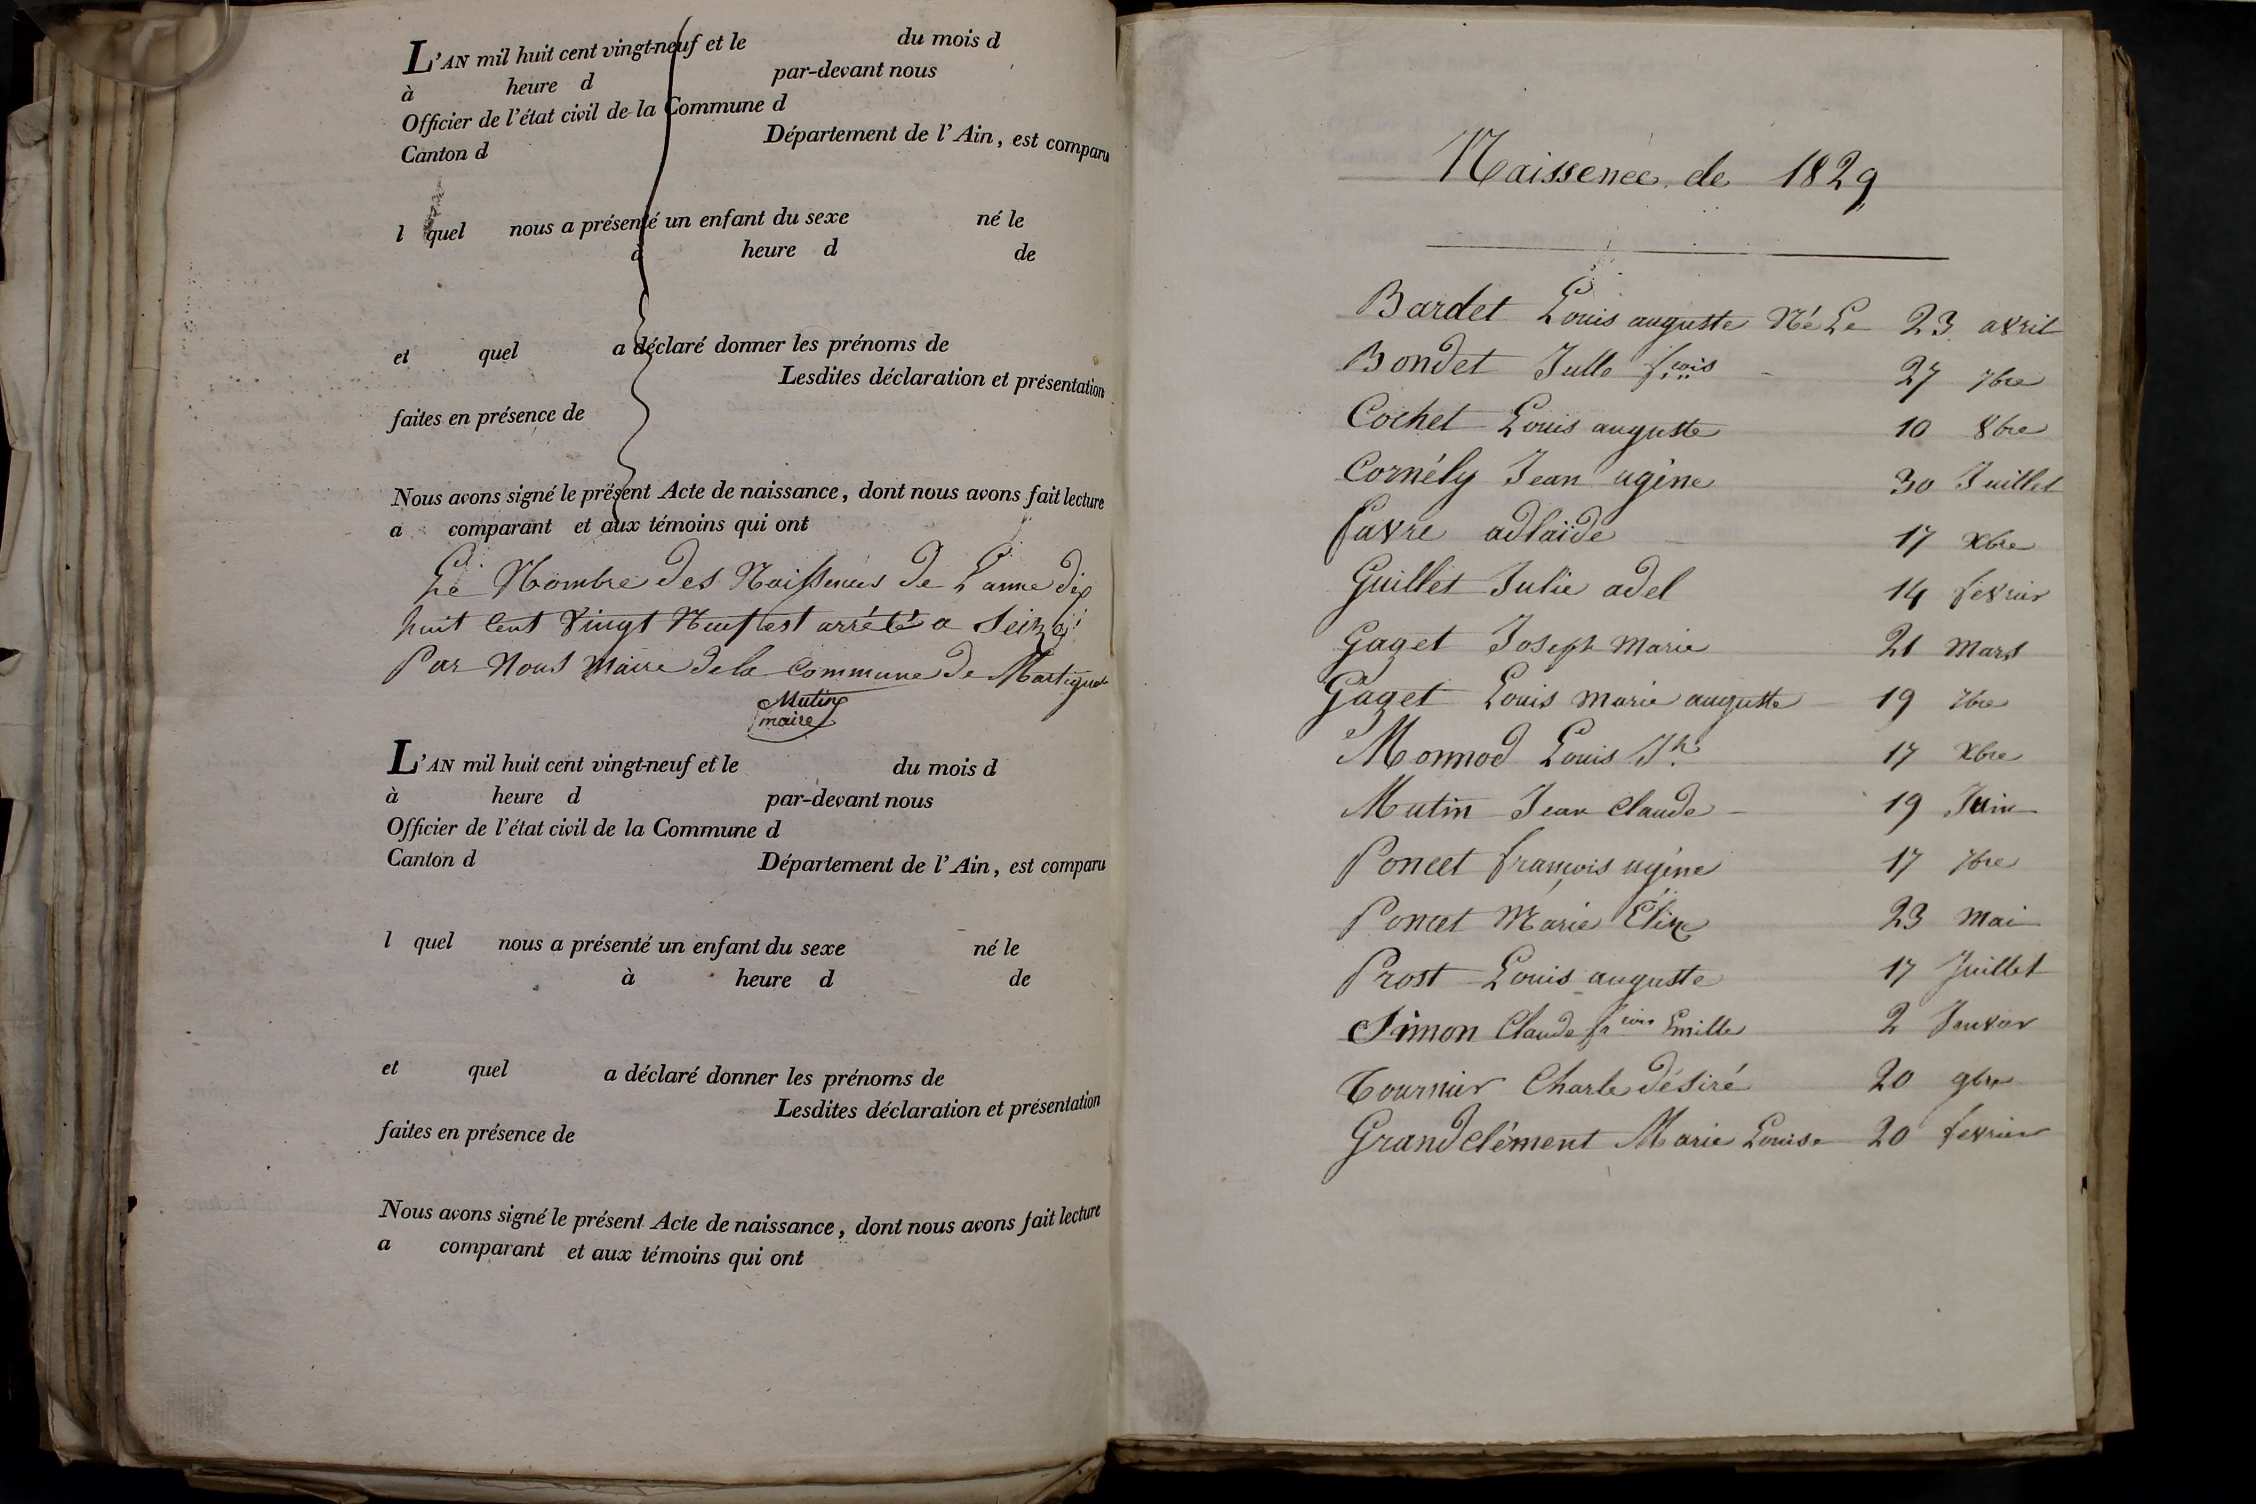 L'AN mil huit cent vingt-neuf et le du mois d
à heure d par-devant nous
Officier de l'état civil de la Commune d
Canton d Département de l'Ain, est comparu
l quel nous a présenté un enfant du sexe né le
à heure d de
et quel a déclaré donner les prénoms de
Lesdites déclaration et présentation
faites en présence de
Nous avons signé le présent Acte de naissance, dont nous avons fait lecture
a comparant et aux témoins qui ont
Le Nombre des Naissences de L'anne dix
huit Cent Vingt Neuf est arrété a Seize
Par Nous Maire de la Commune de Martignat
Mutin
maire
L'AN mil huit cent vingt-neuf et le du mois d
à heure d par-devant nous
Officier de l'état civil de la Commune d
Canton d Département de l'Ain, est comparu
l quel nous a présenté un enfant du sexe né le
à heure d de
et quel a déclaré donner les prénoms de
Lesdites déclaration et présentation
faites en présence de
Nous avons signé le présent Acte de naissance, dont nous avons fait lecture
a comparant et aux témoins qui ont
Naissence de 1829
Bardet Louis auguste Né Le 23 avril
Bondet Julle fcois 27 7bre
Cochet Louis auguste 10 8bre
Cornély Jean ugène 30 Juillet
favre adlaïde 17 Xbre
Guillet Julie adel 14 fevrier
Gaget Joseph Marie 21 Mars
Gaget Louis Marie auguste 19 7bre
Monnod Louis Jh. 17 Xbre
Mutin Jean Claude 19 Juin
Poncet françois ugène 17 7bre
Poncet Marie Elize 23 Mai
Prost Louis auguste 17 Juillet
Simon Claude frcois Emille 2 Janver
Tournier Charle désiré 20 9bre
Grandclément Marie Louise 20 fevrier